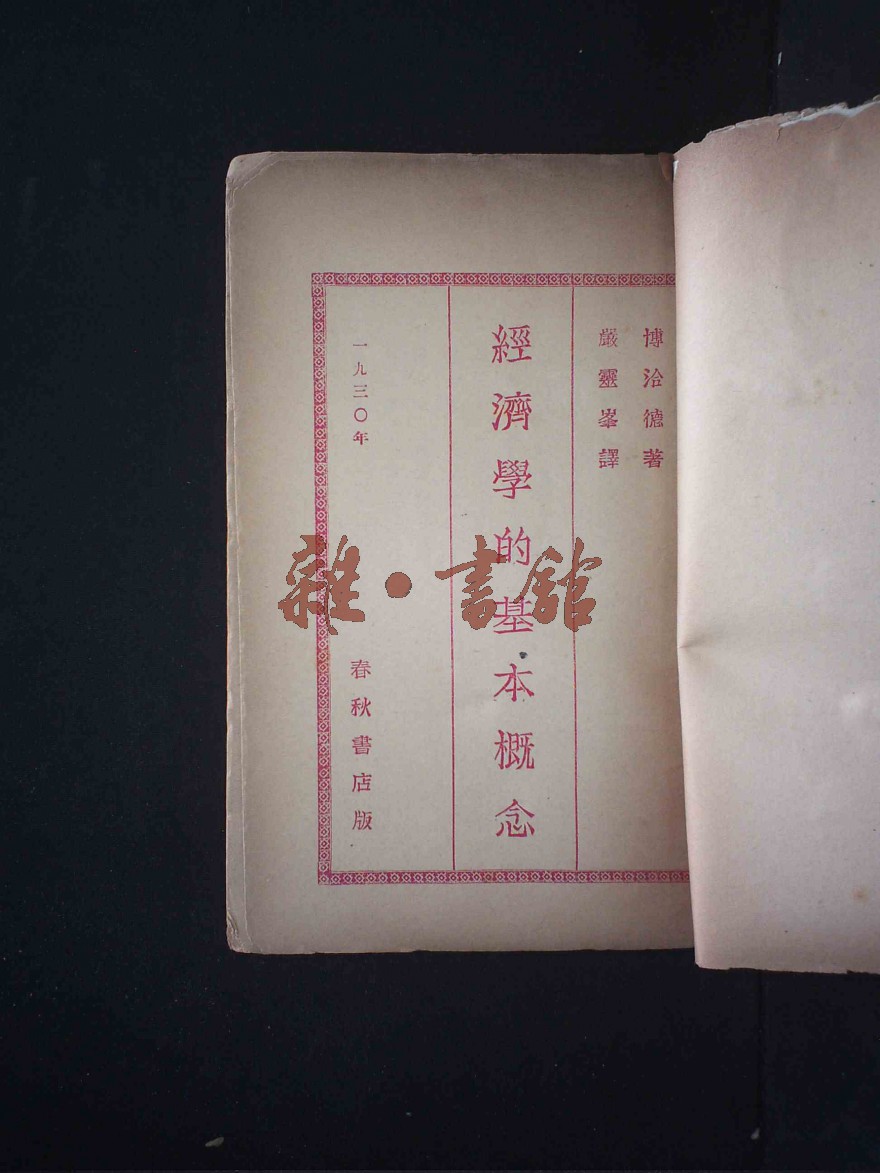 博洽德著
嚴靈峯譯
經濟學的基本概念
一九三〇年
春秋書店版
雜·書館